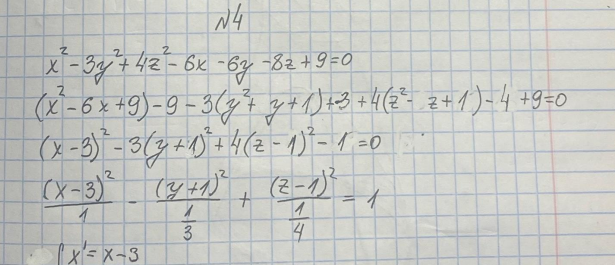 №4
x² - 3y² + 4z² - 6x - 6y - 8z + 9 = 0
(x² - 6x + 9) - 9 - 3(y² + y + 1) + 3 + 4(z² - z + 1) - 4 + 9 = 0
(x - 3)² - 3(y + 1)² + 4(z - 1)² - 1 = 0
(x - 3)²/1 - (y + 1)²/(1/3) + (z - 1)²/(1/4) = 1
{ x' = x - 3